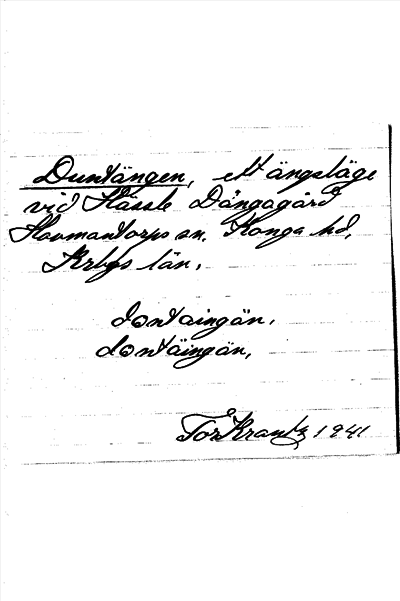 Duntängen, ett ängsläge
vid Hässle Dångagård
Hovmantorps sn. Konga hd,
Krbgs län.
dontaingän.
dontäingän,
Tor Krantz 1941